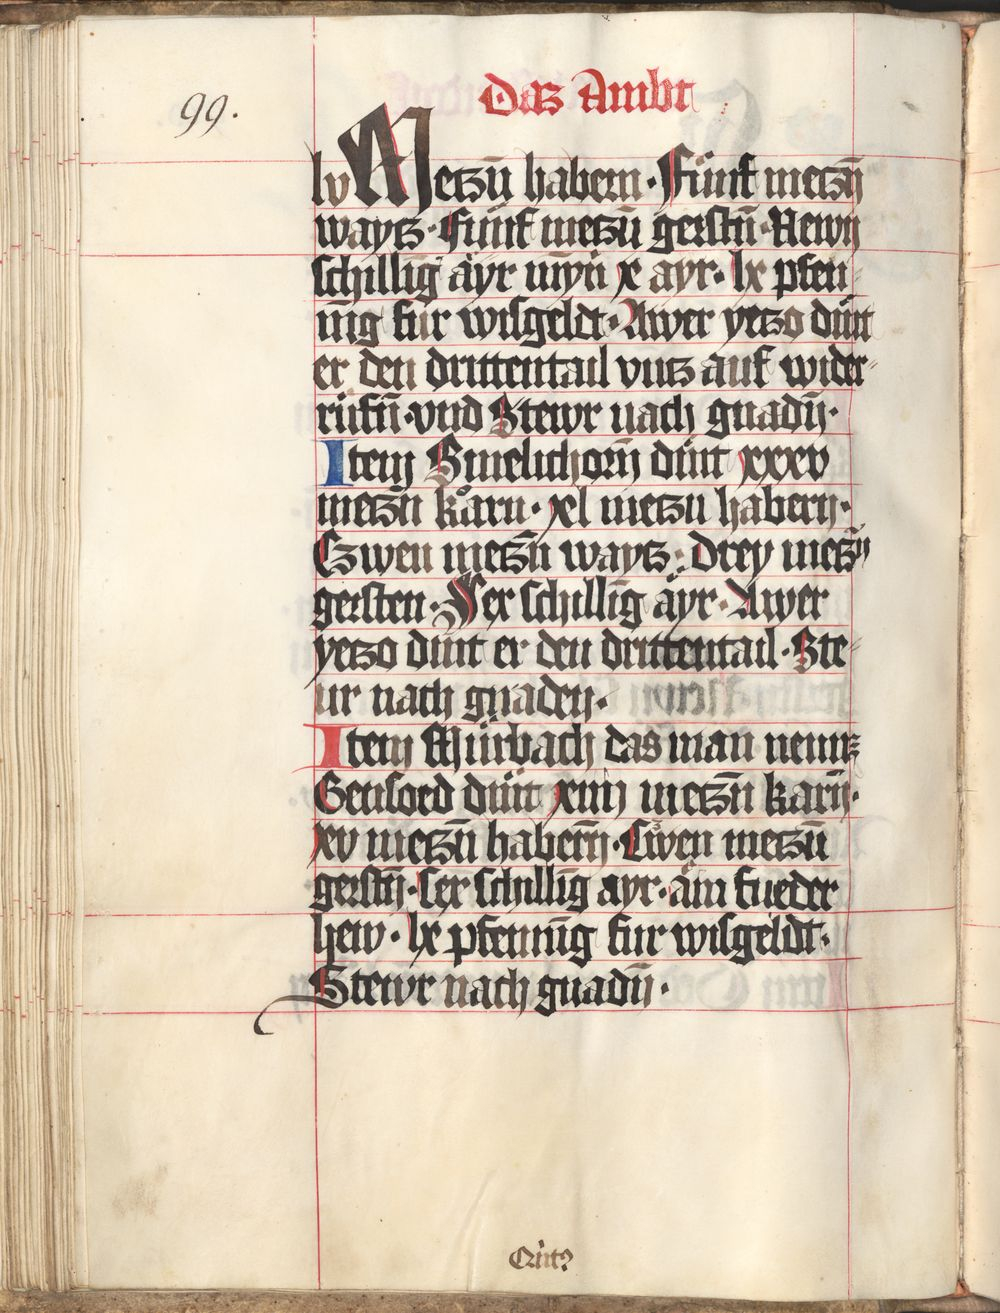 Das Ambt
99.
lv Metzn̄ habern · Fünf metzn̄
waytz · fünf metzn̄ gerstn̄ · Newn
schillīg äyr · x ayr · lx pfen-
nīg für wisgeldt · Awer yetzo dint
er den drittentail vntz auf wider-
rüfn̄ · vnd Stewr nach gnadn̄ ·
Item Smelichorn̄ dint xxxv
metzn̄ karn · xl metzn̄ habern ·
Czwen metzn̄ waytz · Drey metzn̄
gersten · Sex schillīg äyr · Awer
yetzo dint er den drittentail · Ste-
ur nach gnaden ·
Item Mürbach das man nennt
Gensoed dint xiiij metzn̄ karn̄ ·
xv metzn̄ habern̄ · Czwen metzn̄
gerstn̄ · sex schillīg ayr · äin fueder
hew · lx pfennīg für wisgeldt ·
Stewr nach gnadn̄ ·